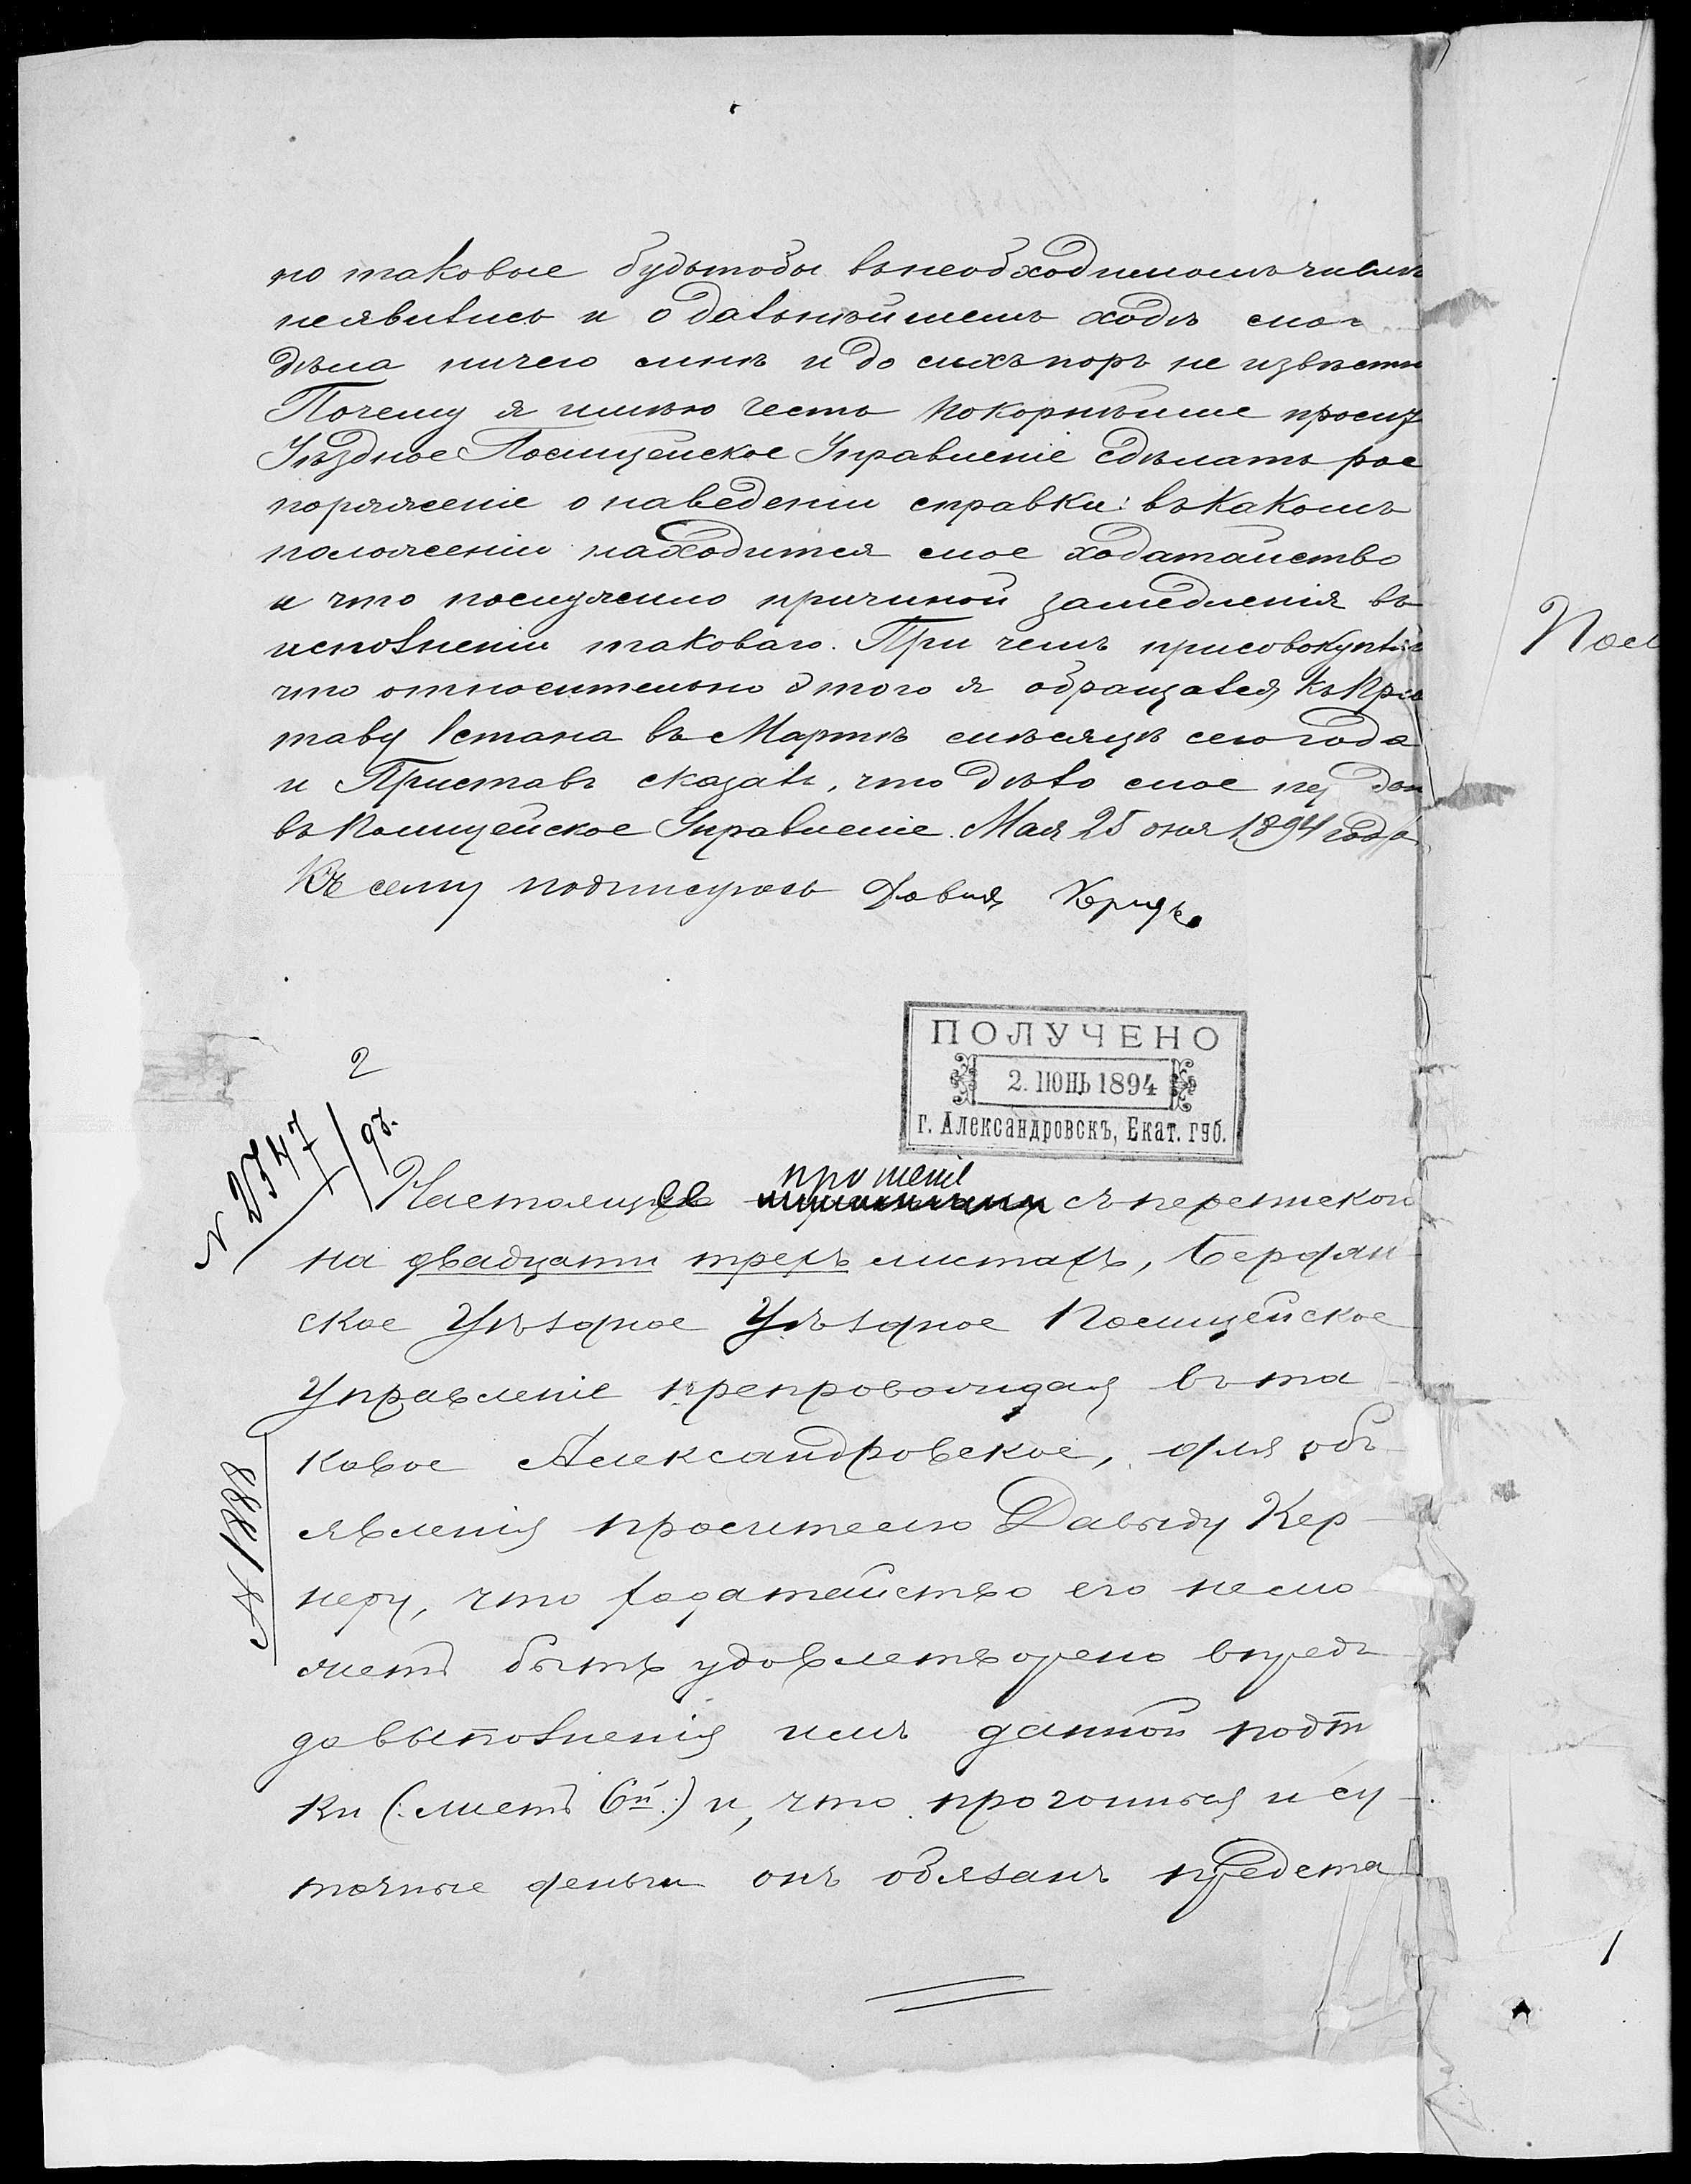 но таковые будьтобы въ необходимомъ числѣ
неявились и о дальнѣйшемъ ходѣ мое
дѣла ничего мнѣ и до сихъ поръ не извѣстн
Почему я имѣю честь покорнѣише просит
Уѣздное Полицейское Управленіе сдѣлать рас
поряженіе о наведеніи справки: въ какомъ
положеніи находится мое ходатайство
и что послужило причиной замедленія въ
исполненіи таковаго. При чемъ присовокупл
что относительно этого я обращался къ При
таву 1 стана въ Мартѣ мѣсяцѣ сего года
и Приставъ сказалъ, что дѣло мое
въ Полицейское Управленіе. Мая 25 дня 1894 года
Къ сему подписуюсь Давид
ПОЛУЧЕНО
2. ІЮНЬ 1894
г. Александровскъ, Екат. губ.
2
N 2547
прошеніе
Настоящее съ перепиской
на двадцати трехъ листахъ, Бердян
ское Уѣздное Уѣздное Полицейское
Управленіе препровождая въ та
ковое Александровское, для объ
явленія просителю Давыду Кер
неру, что ходатайство его не мо
жетъ быть удовлетворено впредь
до выполненія имъ данной подп
ки (листъ 6й) и, что прогонныя и су
точные деньги онъ обязанъ предста
№ 1888
Пол